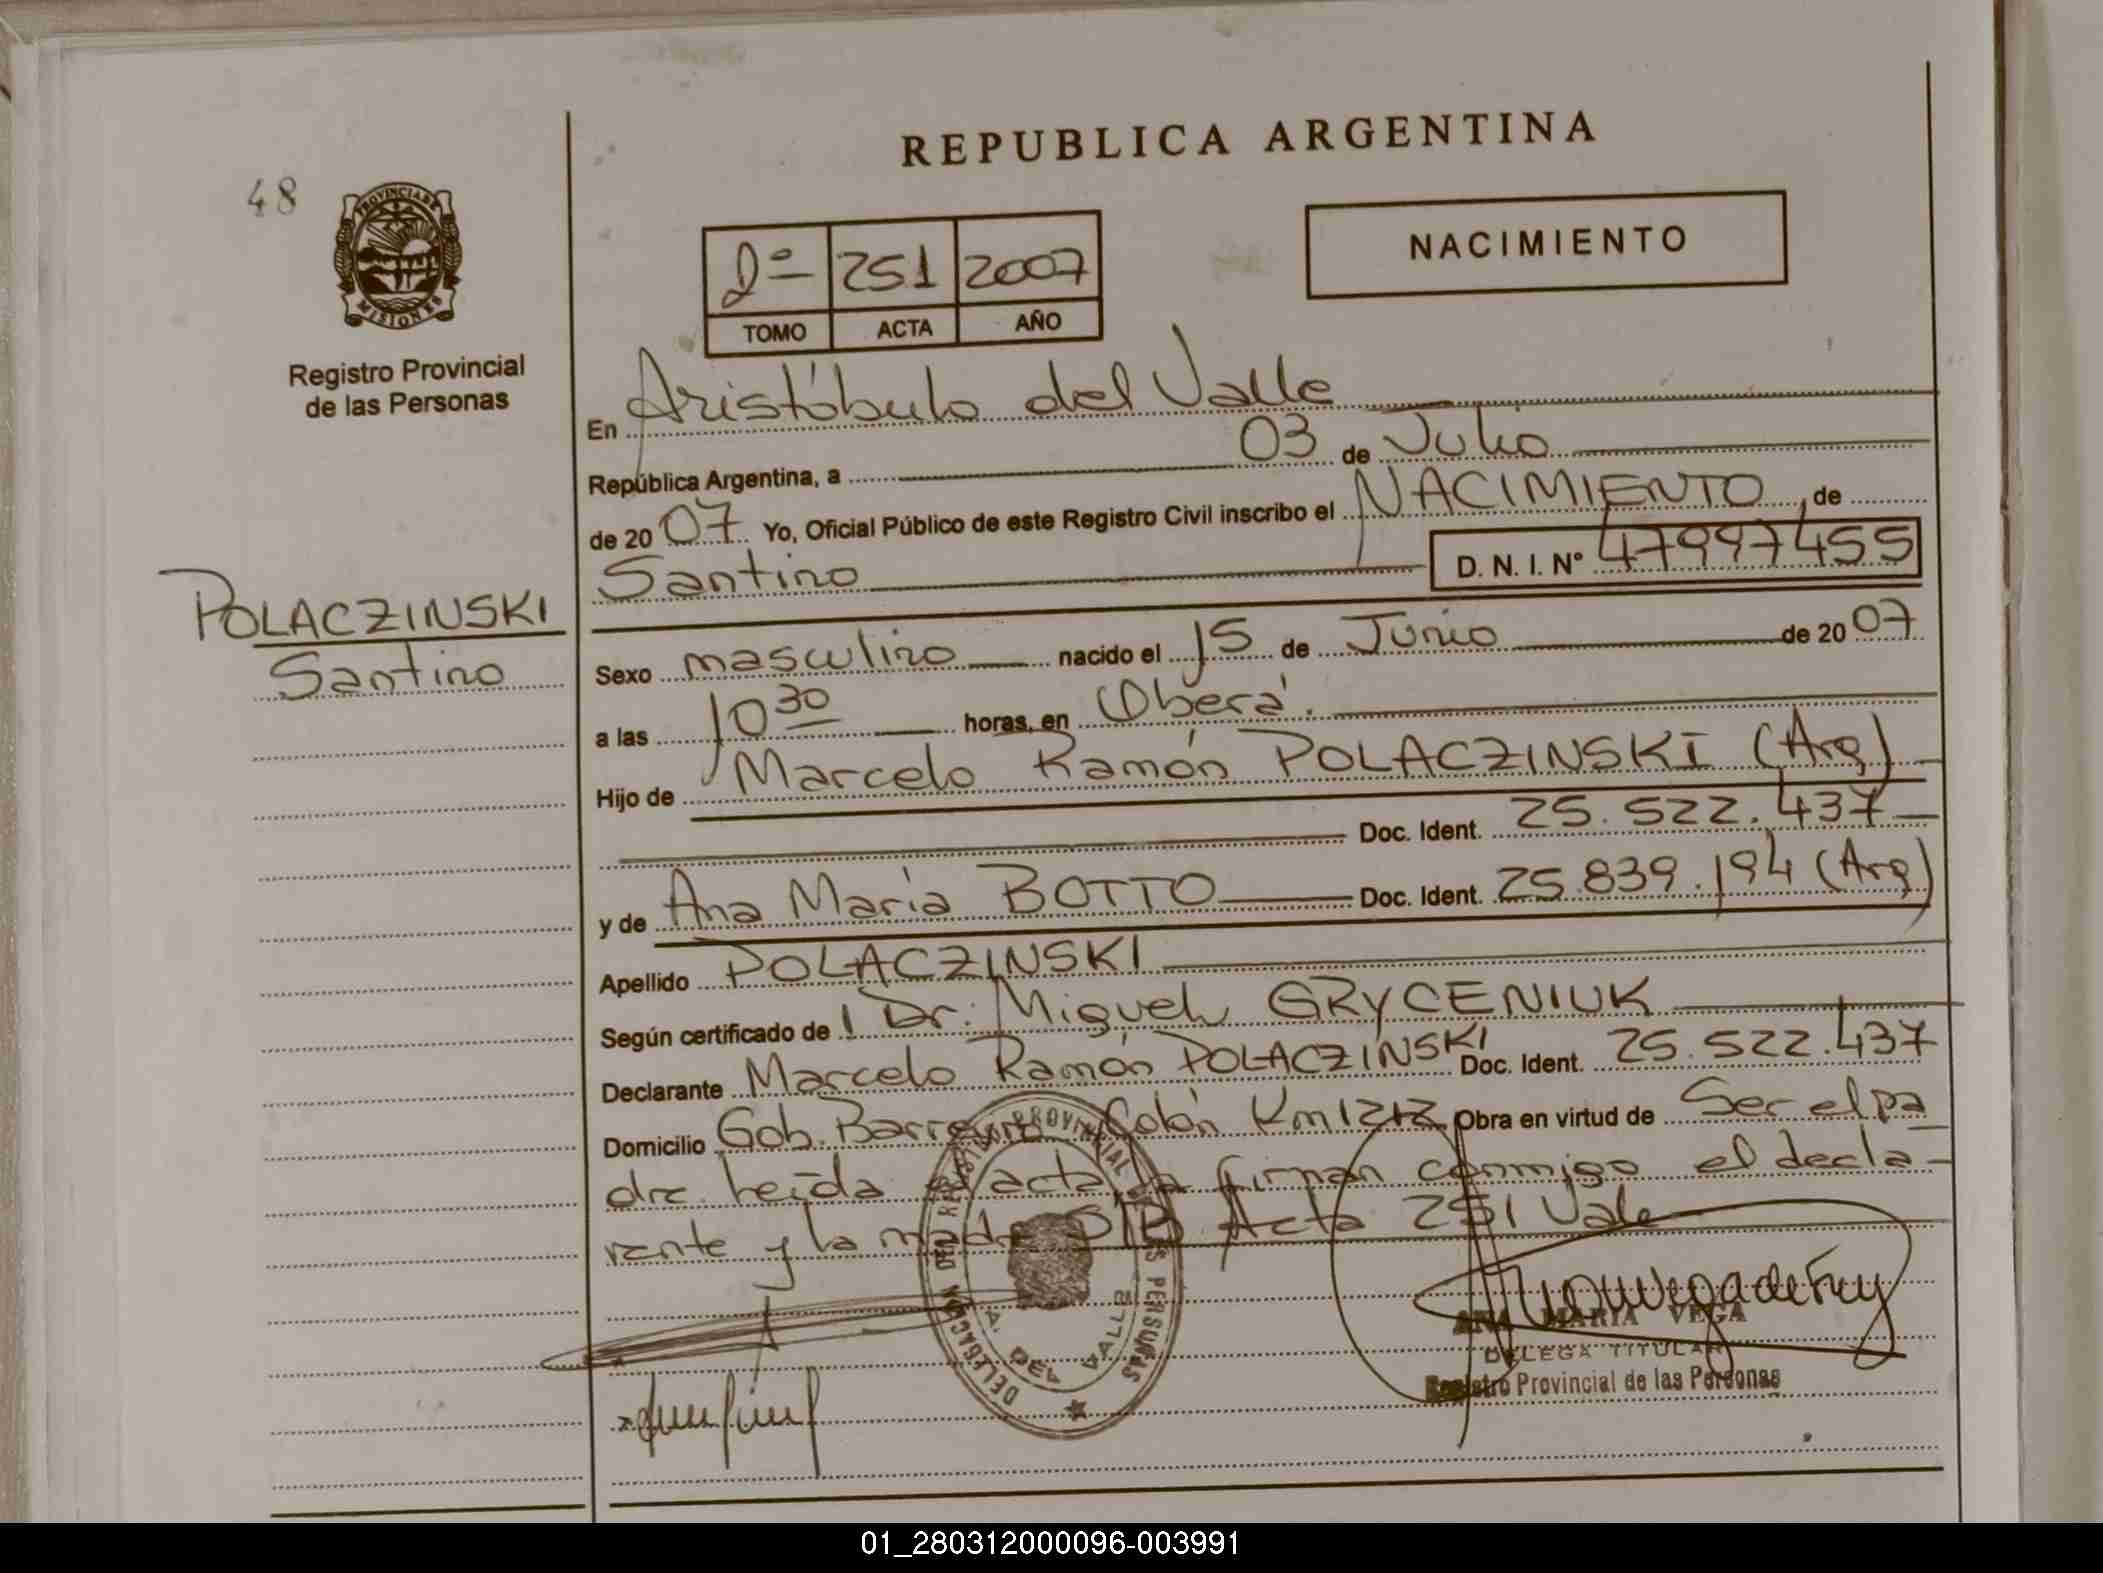 REPUBLICA ARGENTINA
48
PROVINCIA DE
MISIONES
Registro Provincial
de las Personas
NACIMIENTO
2º 251 2007
TOMO ACTA AÑO
En Aristóbulo del Valle
República Argentina, a 03 de Julio
de 2007 Yo, Oficial Público de este Registro Civil inscribo el NACIMIENTO, de
Santino D. N. I. Nº 47997455
POLACZINSKI
Santino
Sexo masculino nacido el 15 de Junio de 2007
a las 10 30 horas, en Oberá.
Hijo de Marcelo Ramón POLACZINSKI (Arg)
Doc. Ident. 25.522.437
y de Ana María BOTTO Doc. Ident. 25.839.194 (Arg)
Apellido POLACZINSKI
Según certificado de Dr. Miguel GRYCENIUK
Declarante Marcelo Ramón POLACZINSKI Doc. Ident. 25.522.437
Domicilio Gob. Barreyro Colón Km 1212 Obra en virtud de Ser el pa
dre. leída el acta la firman conmigo el decla-
rante y la madre S/B Acta 251 Vale
DELEGACION DEL REGISTRO PROVINCIAL DE LAS PERSONAS
A. DEL VALLE
ANA MARIA VEGA
DELEGA TITULAR
Registro Provincial de las Personas
01_280312000096-003991